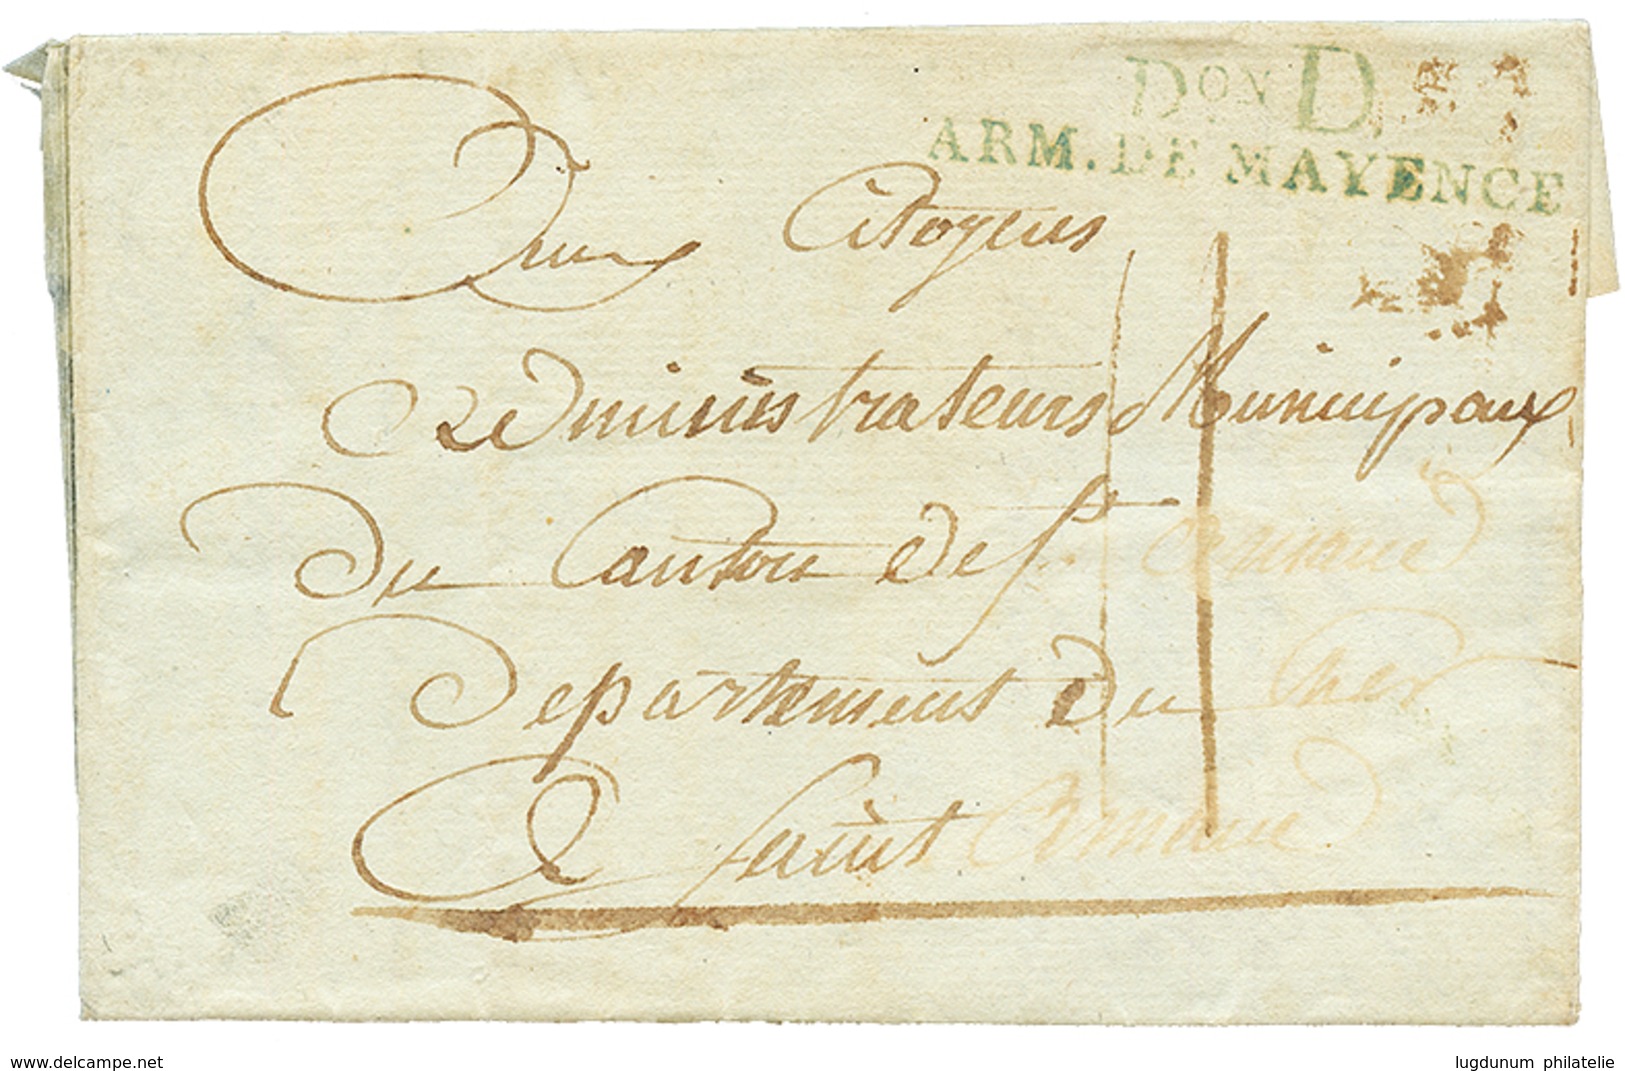 Don D.
ARM. DE MAYENCE
Aux Citoyens
Administrateurs Municipaux
Du Canton de St. Amand
Departement du Cher
A Saint Amand
www.delcampe.net
lugdunum philatelie